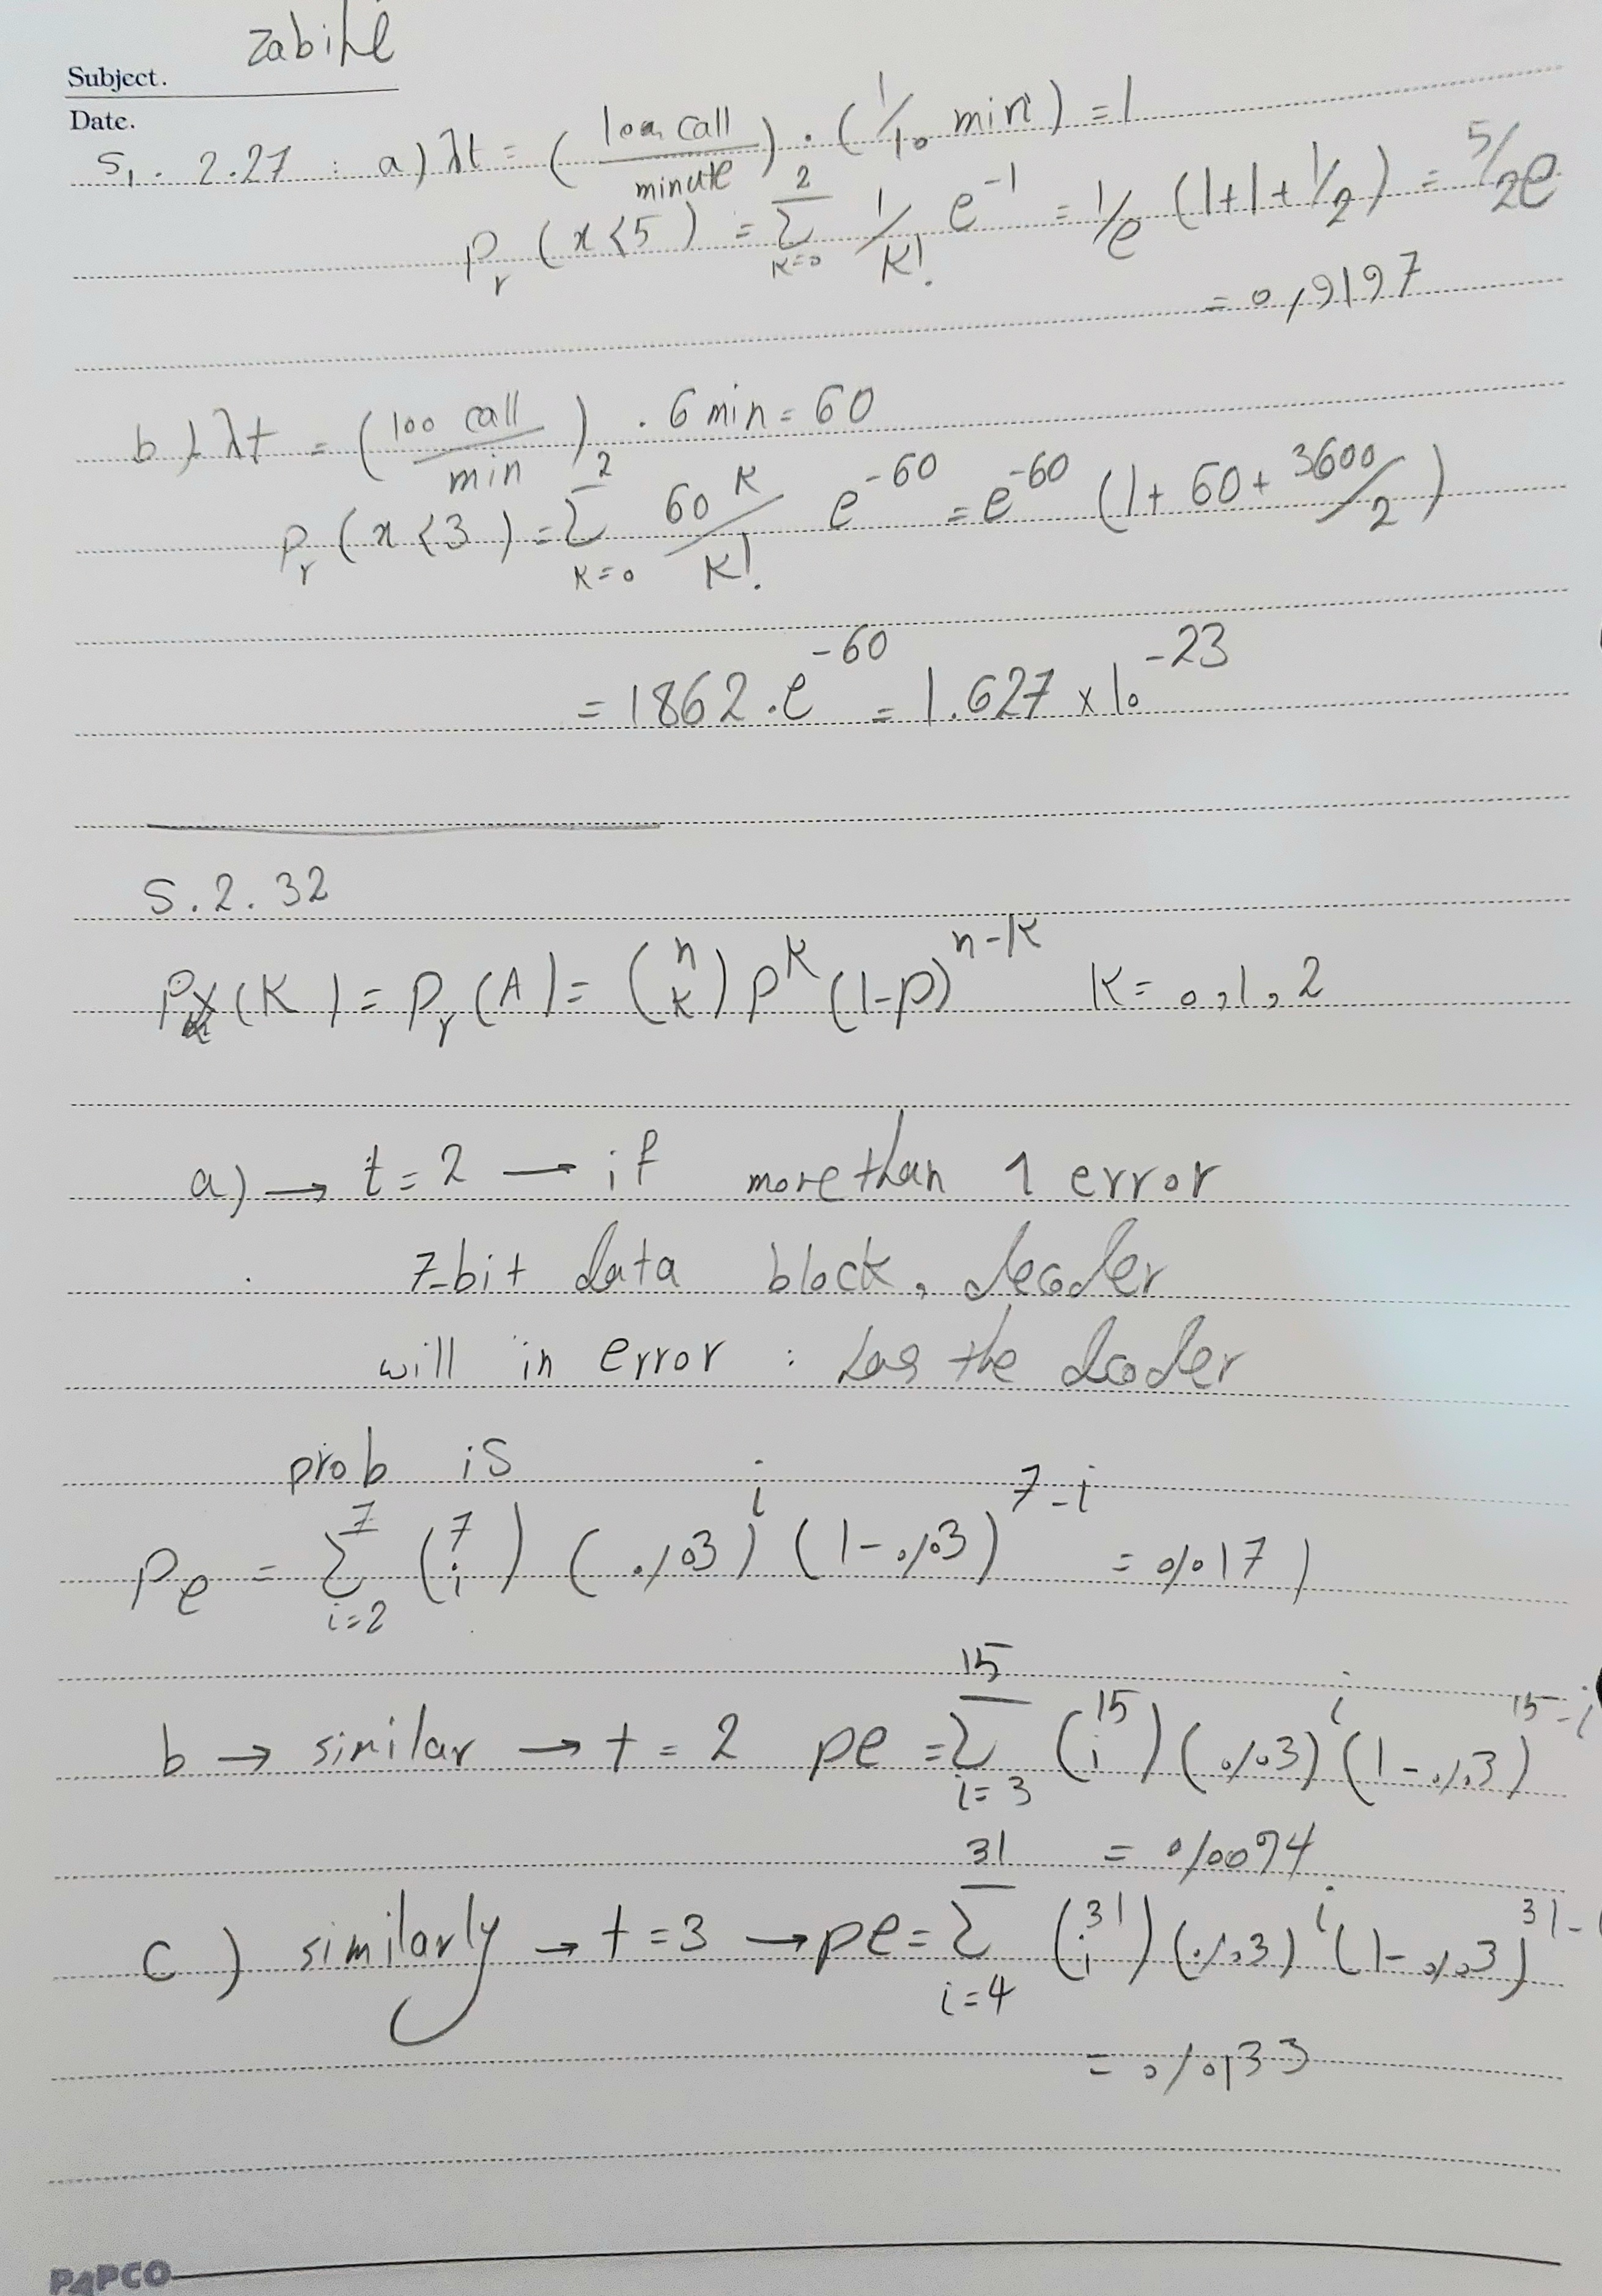 Subject. zabihi
Date.
S1. 2.27 : a) λt = (100 call / minute) . (1/10 min) = 1
Pr (x<5) = Σ_{k=0}^{2} 1/k! e^{-1} = 1/e (1+1+1/2) = 5/2e
= 0,9197
b) λt = (100 call / min) . 6 min = 60
Pr (x<3) = Σ_{k=0}^{2} 60^k/k! e^{-60} = e^{-60} (1+60+3600/2)
= 1862 . e^{-60} = 1.627 × 10^{-23}
S.2.32
Px(k) = Pr(A) = (n k) p^k (1-p)^{n-k} k = 0,1,2
a) → t=2 → if more than 1 error
7-bit data block, decoder
will in error : the decoder
prob is
Pe = Σ_{i=2}^{7} (7 i) (0,03)^i (1-0,03)^{7-i} = 0,0171
b → similar → t=2 pe = Σ_{i=3}^{15} (15 i) (0,03)^i (1-0,03)^{15-i}
= 0,0094
c) similarly → t=3 → pe = Σ_{i=4}^{31} (31 i) (0,03)^i (1-0,03)^{31-i}
= 0,0133
PAPCO